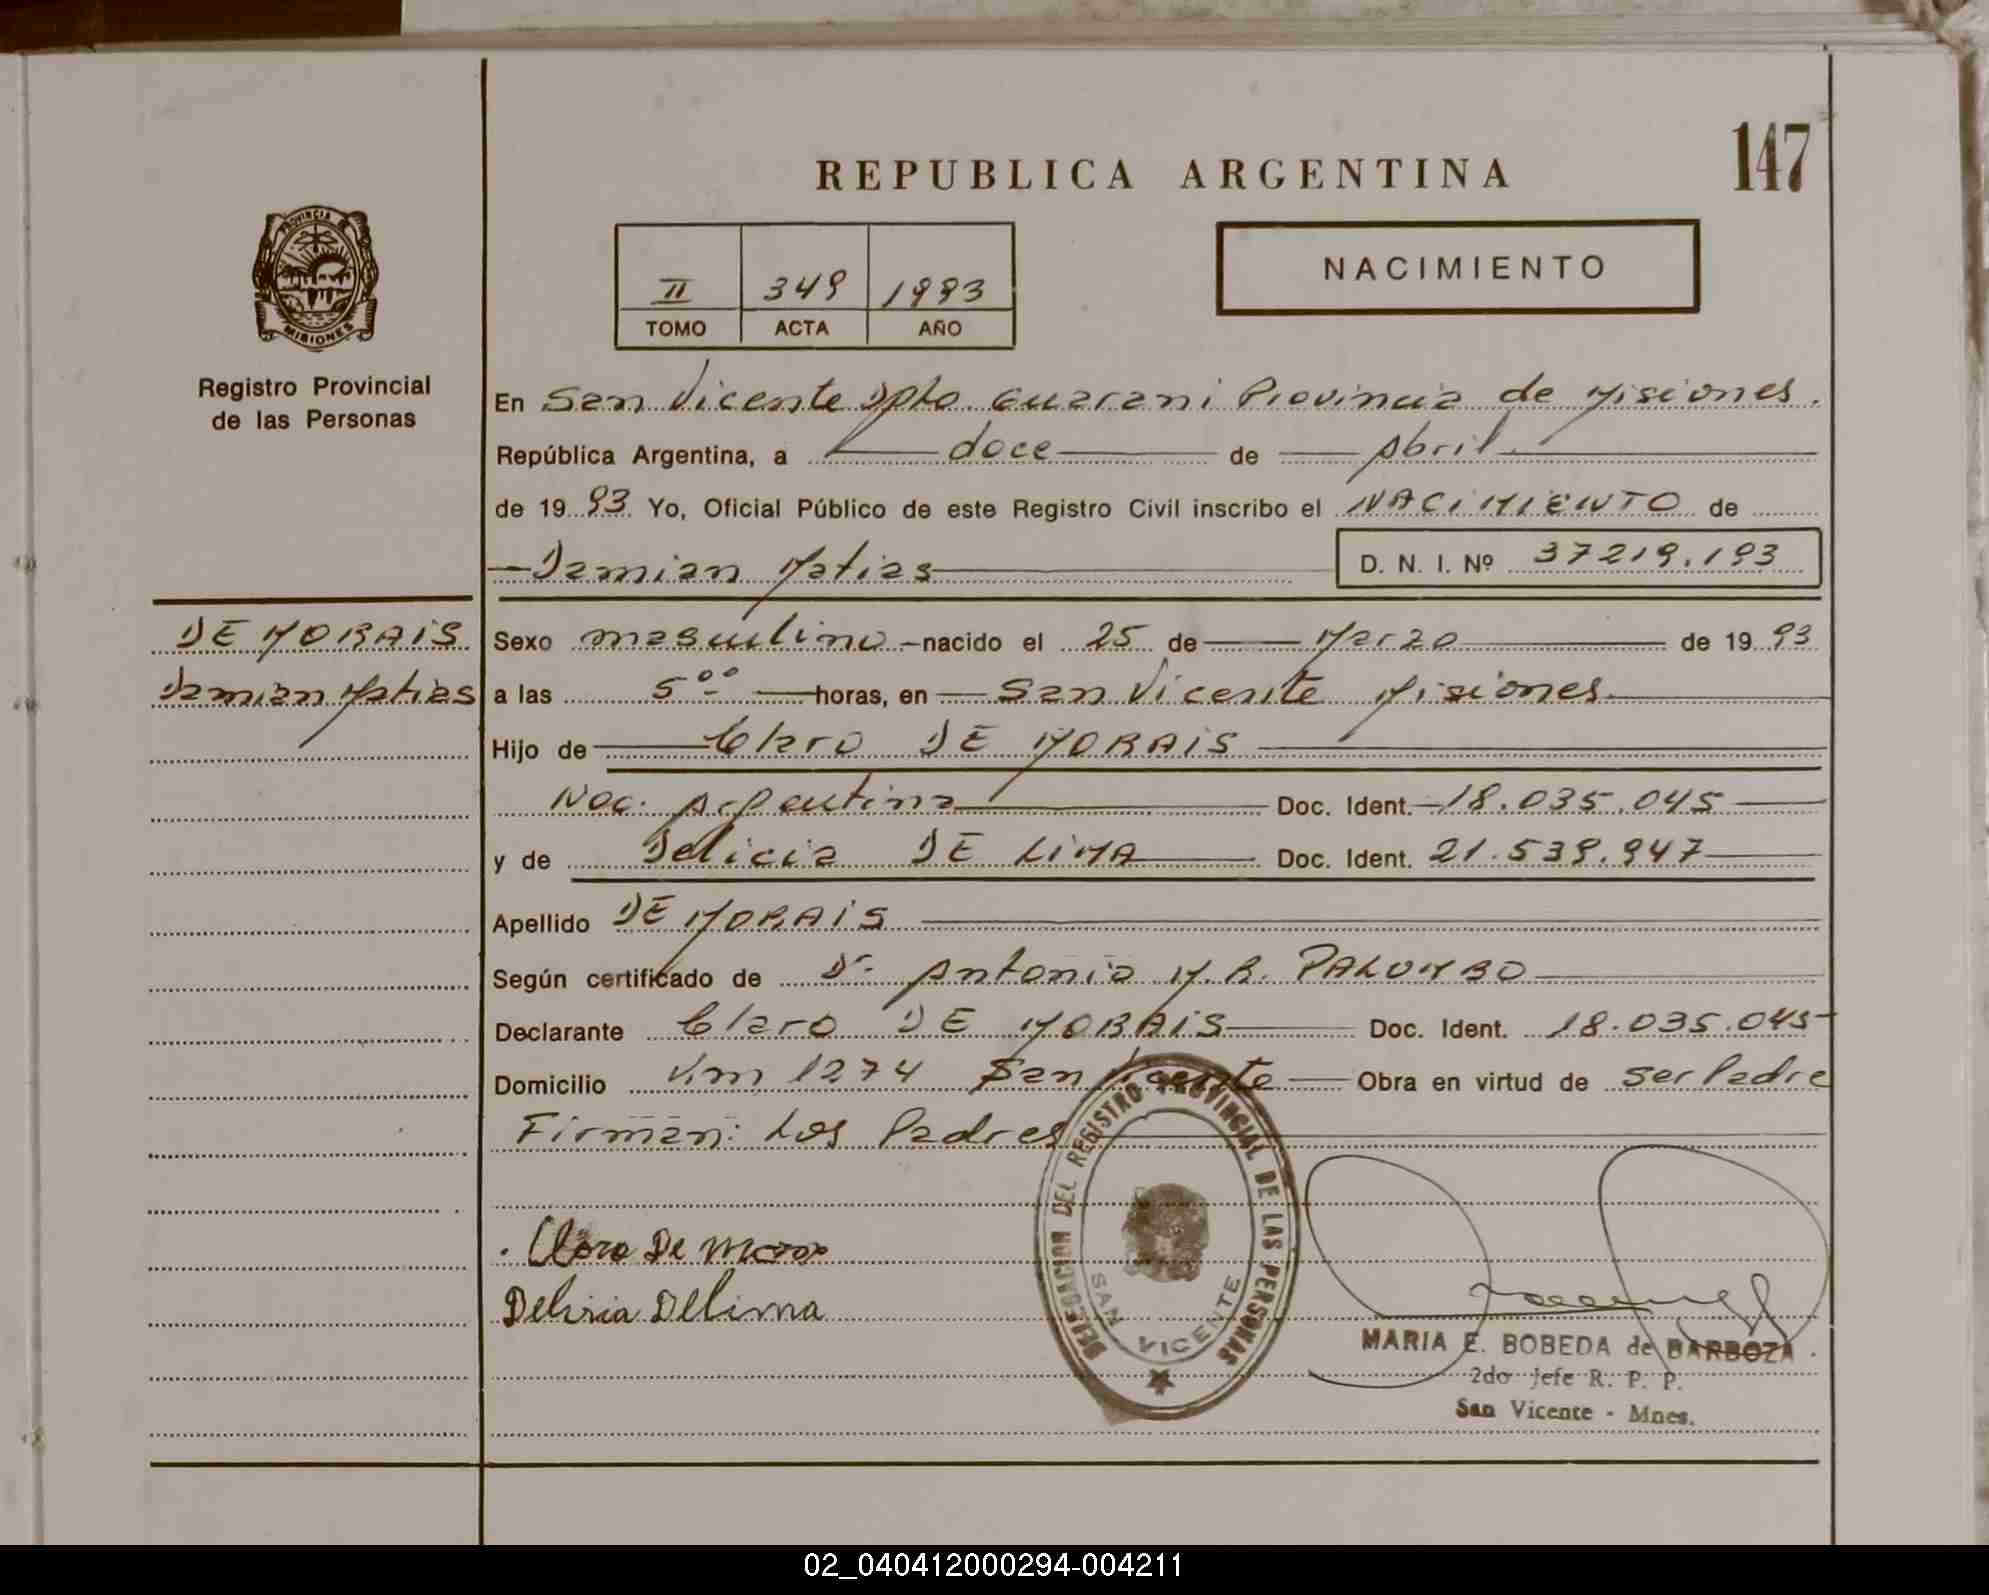 147
REPUBLICA ARGENTINA
PROVINCIA
MISIONES
Registro Provincial
de las Personas
NACIMIENTO
II 349 1993
TOMO ACTA AÑO
En San Vicente Dpto. Guarani Provincia de Misiones.
República Argentina, a doce de Abril
de 19 93 Yo, Oficial Público de este Registro Civil inscribo el NACIMIENTO de
Damian Matias D. N. I. Nº 37219.193
DE MORAIS
Damian Matias
Sexo masculino nacido el 25 de Marzo de 19 93
a las 5°° horas, en San Vicente Misiones
Hijo de Claro DE MORAIS
Nac. Argentina Doc. Ident. 18.035.045
y de Delicia DE LIMA Doc. Ident. 21.539.947
Apellido DE MORAIS
Según certificado de Dr. Antonio M. R. PALOMBO
Declarante Claro DE MORAIS Doc. Ident. 18.035.045
Domicilio Km 1274 San Vicente Obra en virtud de ser Padre
Firman: Los Padres
DELEGACION DEL REGISTRO PROVINCIAL DE LAS PERSONAS
SAN VICENTE
Claro De
Delicia Delima
MARIA E. BOBEDA de BARBOZA
2do Jefe R. P. P.
San Vicente - Mnes.
02_040412000294-004211